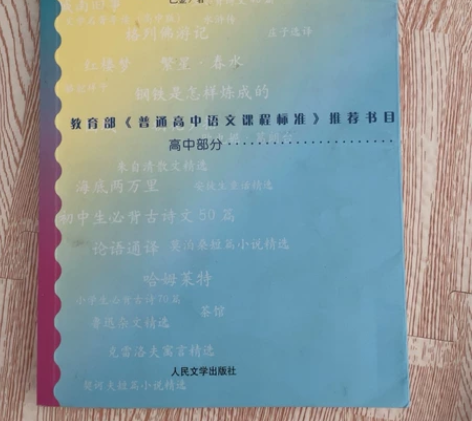 格列佛游记
孟子选译
红楼梦 繁星·春水
钢铁是怎样炼成的
教育部《普通高中语文课程标准》推荐书目
高中部分
朱自清散文精选
海底两万里 安徒生童话精选
初中生必背古诗文50篇
论语通译 莫泊桑短篇小说精选
哈姆莱特
小学生必背古诗70篇
茶馆
鲁迅杂文精选
克雷洛夫寓言精选
人民文学出版社
契诃夫短篇小说精选